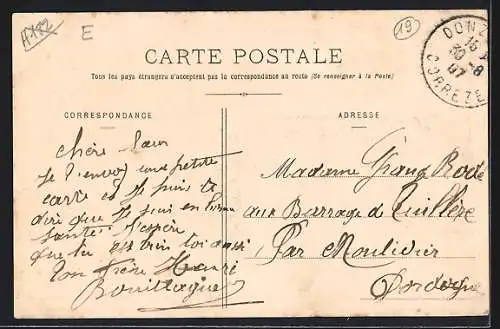 A182
E
19
DONZ
15
30 -8
07
CORREZE
CARTE POSTALE
Tous les pays étrangers n'acceptent pas la correspondance au recto (Se renseigner à la Poste)
CORRESPONDANCE
ADRESSE
chère Sœur
Je t'envoy une petite
carte et Je puis te
dire que Je suis en bonne
santé J'espère
que tu est bien toi aussi
Ton frère Henri
Bouillaguet
Madame
aux Barrage de Tuillère
Par Mouleidier
Dordogne